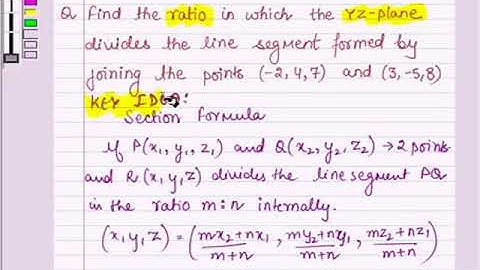 Q Find the ratio in which the YZ-plane
divides the line segment formed by
joining the points (-2,4,7) and (3,-5,8)
KEY IDEA:
Section Formula
If P(x₁, y₁, z₁) and Q(x₂, y₂, z₂) → 2 points
and R(x,y,z) divides the line segment PQ
in the ratio m:n internally.
(x,y,z) = (mx₂+nx₁/m+n, my₂+ny₁/m+n, mz₂+nz₁/m+n)